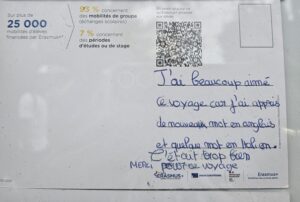 Sur plus de
25 000
mobilités d'élèves
financées par Erasmus+
93 % concernent
des mobilités de groupe
(échanges scolaires)
7 % concernent
des périodes
d'études ou de stage
J'ai beaucoup aimé
ce voyage car j'ai appris
de nouveaux mot en anglais
et quelque mot en Italien.
C'était trop bien
MERCI pour ce voyage
ERASMUS+
Erasmus+